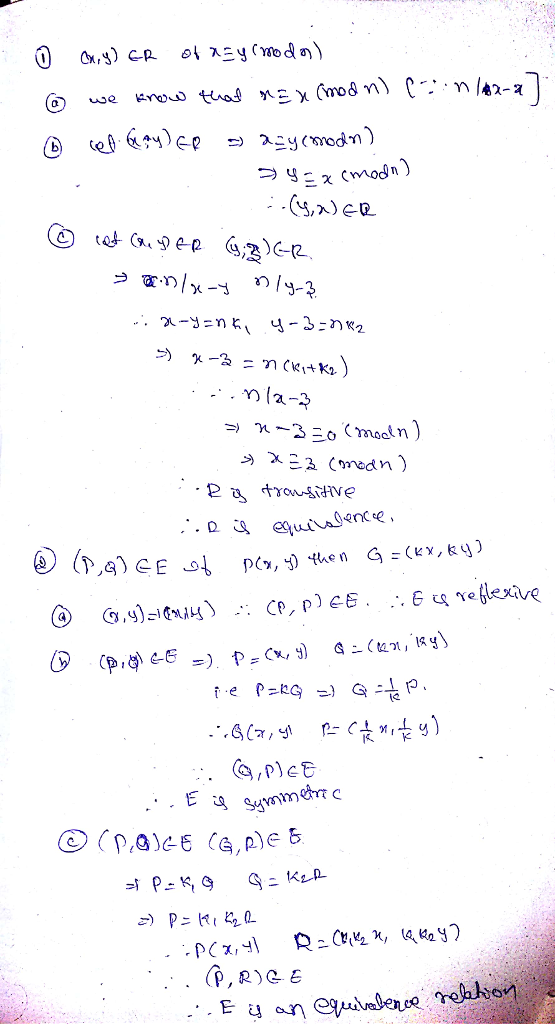 ① (x,y) ∈R if x≡y (mod n)
ⓐ we know that x≡x (mod n) [∵ n/x-x]
ⓑ let (x,y) ∈R ⇒ x≡y (mod n)
⇒ y≡x (mod n)
∴ (y,x) ∈R
ⓒ let (x,y) ∈R (y,z) ∈R
⇒ n/x-y n/y-z
∴ x-y=nk₁ y-z=nk₂
⇒ x-z = n(k₁+k₂)
∴ n/x-z
⇒ x-z≡0 (mod n)
⇒ x≡z (mod n)
∴ R is transitive
∴ R is equivalence.
② (P,Q) ∈E if P(x,y) then Q=(kx,ky)
ⓐ (x,y)=1(x,y) ∴ (P,P) ∈E. ∴ E is reflexive
ⓑ (P,Q) ∈E ⇒ P=(x,y) Q=(kx,ky)
i.e P=kQ ⇒ Q=1/k P.
∴ Q(x,y) P=(1/k x, 1/k y)
∴ (Q,P) ∈E
∴ E is symmetric
ⓒ (P,Q)∈E (Q,R)∈E
⇒ P=k₁Q Q=k₂R
⇒ P=k₁k₂R
∴ P(x,y) R=(k₁k₂x, k₁k₂y)
∴ (P,R)∈E
∴ E is an equivalence relation